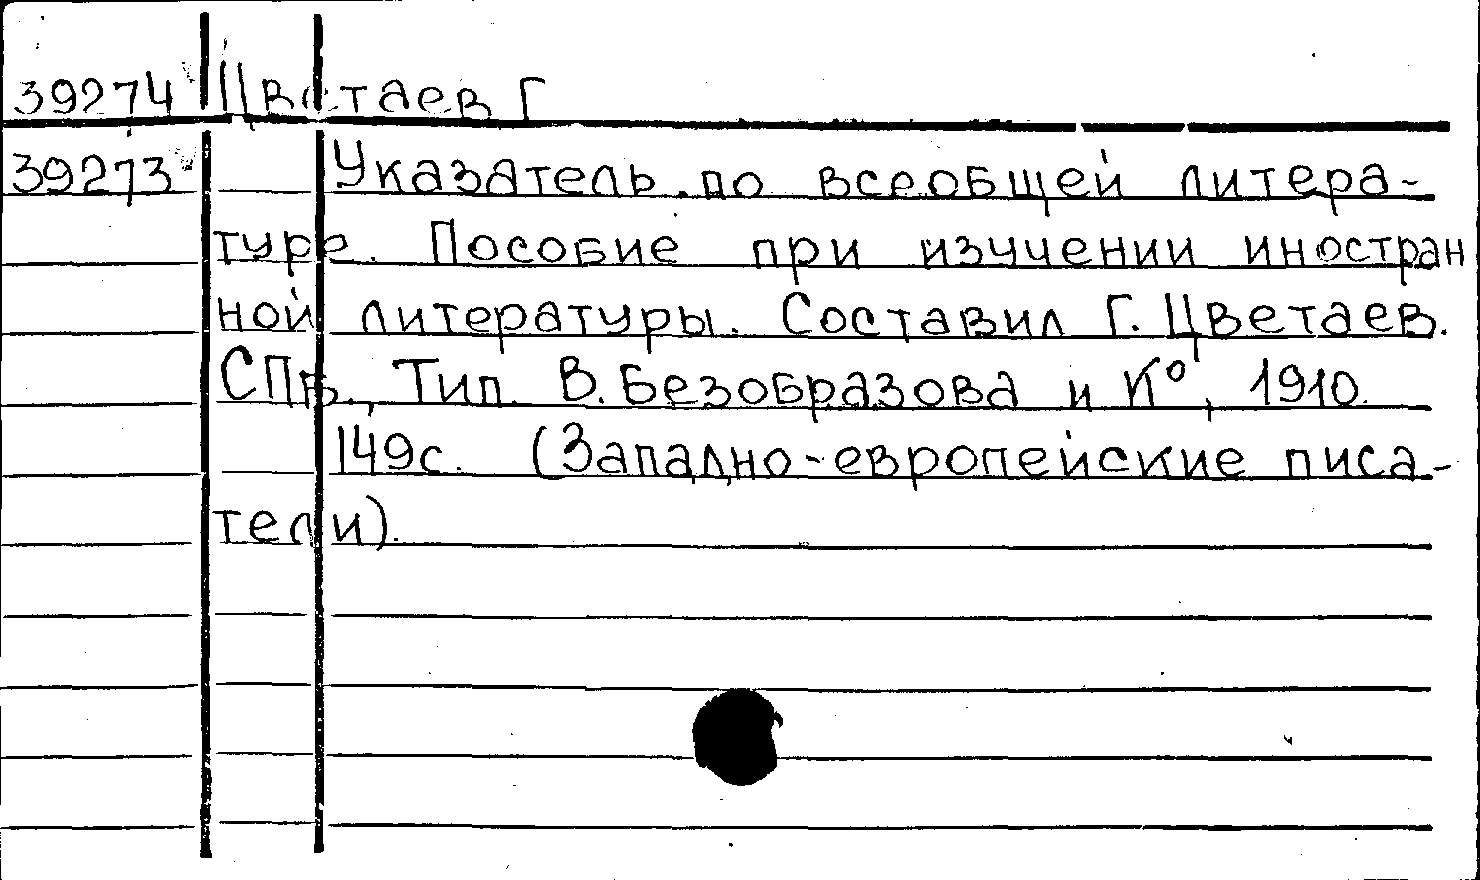 39274 Цветаев Г
39273 Указатель по всеобщей литера-
туре. Пособие при изучении иностран
ной литературы. Составил Г. Цветаев.
СПБ., Тип. В. Безобразова и Кº, 1910.
149с. (Западно-европейские писа-
тели).